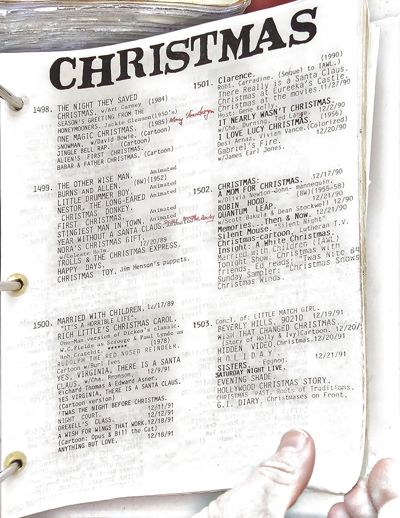 CHRISTMAS
1498. THE NIGHT THEY SAVED
CHRISTMAS. w/Art Carney (1984)
SEASON'S GREETING FROM THE
HONEYMOONERS. Jackie Gleason(1950's)
ONE MAGIC CHRISTMAS.
SNOWMAN. w/David Bowie. (Cartoon)
JINGLE BELL RAP. (Cartoon)
ALIEN'S FIRST CHRISTMAS.
BABAR & FATHER CHRISTMAS. (Cartoon)
1499. THE OTHER WISE MAN. Animated
BURNS AND ALLEN. (BW)(1952)
LITTLE DRUMMER BOY. Animated
NESTOR, THE LONG-EARED
CHRISTMAS DONKEY. Animated
FIRST CHRISTMAS. Animated
STINGIEST MAN IN TOWN. Animated
YEAR WITHOUT A SANTA CLAUS.
NORA'S CHRISTMAS GIFT.
w/Celeste Holm. 12/20/89
TROLLS & THE CHRISTMAS EXPRESS.
HAPPY DAYS.
CHRISTMAS TOY. Jim Henson's puppets.
1500. MARRIED WITH CHILDREN. 12/17/89
"IT'S A HORRIBLE LIFE".
RICH LITTLE'S CHRISTMAS CAROL.
One-Man version of Dickens's classic.
W.C.Fields as Scrooge & Paul Lynde as
Bob Cratchit. ****** (1978)
RUDOLPH THE RED NOSED REINDEER.
Cartoon w/Burl Ives
YES, VIRGINIA, THERE IS A SANTA
CLAUS. w/Chs. Bronson, 12/9/91
Richard Thomas & Edward Asner.
YES, VIRGINIA, THERE IS A SANTA CLAUS.
(Cartoon version)
'TWAS THE NIGHT BEFORE CHRISTMAS.
NIGHT COURT. 12/11/91
DREXELL'S CLASS. 12/12/91
A WISH FOR WINGS THAT WORK. 12/18/91
(Cartoon: Opus & Bill the Cat)
ANYTHING BUT LOVE. 12/18/91
1501. Clarence. (1990)
Robt. Carradine. (Sequel to IAWL.)
There Really is a Santa Claus.
Christmas at Eureka's Castle.
Christmas at the movies. 11/27/90
Host: Gene Kelly.
IT NEARLY WASN'T CHRISTMAS.
w/Chs. Durning, Ted Lange. (1989)
I LOVE LUCY CHRISTMAS. (1956)
Desi Arnaz, Vivian Vance. (Colorized)
Gabriel's Fire. 12/20/90
w/James Earl Jones.
1502. CHRISTMAS:
A MOM FOR CHRISTMAS. 12/17/90
w/Olivia Newton-John- mannequin.
ROBIN HOOD. (BW)(1955-58)
QUANTUM LEAP. 12/21/90
w/Scott Bakula & Dean Stockwell
Memories.. Then & Now. 12/21/90
Silent Mouse. "Silent Night"
Christmas-cartoon. Lutheran T.V.
Insight: A White Christmas.
Married With Children (IAWL)
Tonight Show. Christmas with
friends. Ed reads: "Twas Nite B4
Sunday Sampler: "Christmas Snows
Christmas Winds."
1503. Concl. of: LITTLE MATCH GIRL.
BEVERLY HILLS, 90210 12/19/91
WISH THAT CHANGED CHRISTMAS.
(Story of Holly & Ivy)Cartoon. 12/20/
HIDDEN VIDEO Christmas. 12/20/91
H O L I D A Y
SISTERS. Egpnog. 12/21/91
SATURDAY NIGHT LIVE.
EVENING SHADE.
HOLLYWOOD CHRISTMAS STORY.
CHRISTMAS PAST: Roots of Traditions.
G.I. DIARY. Christmases on Front.